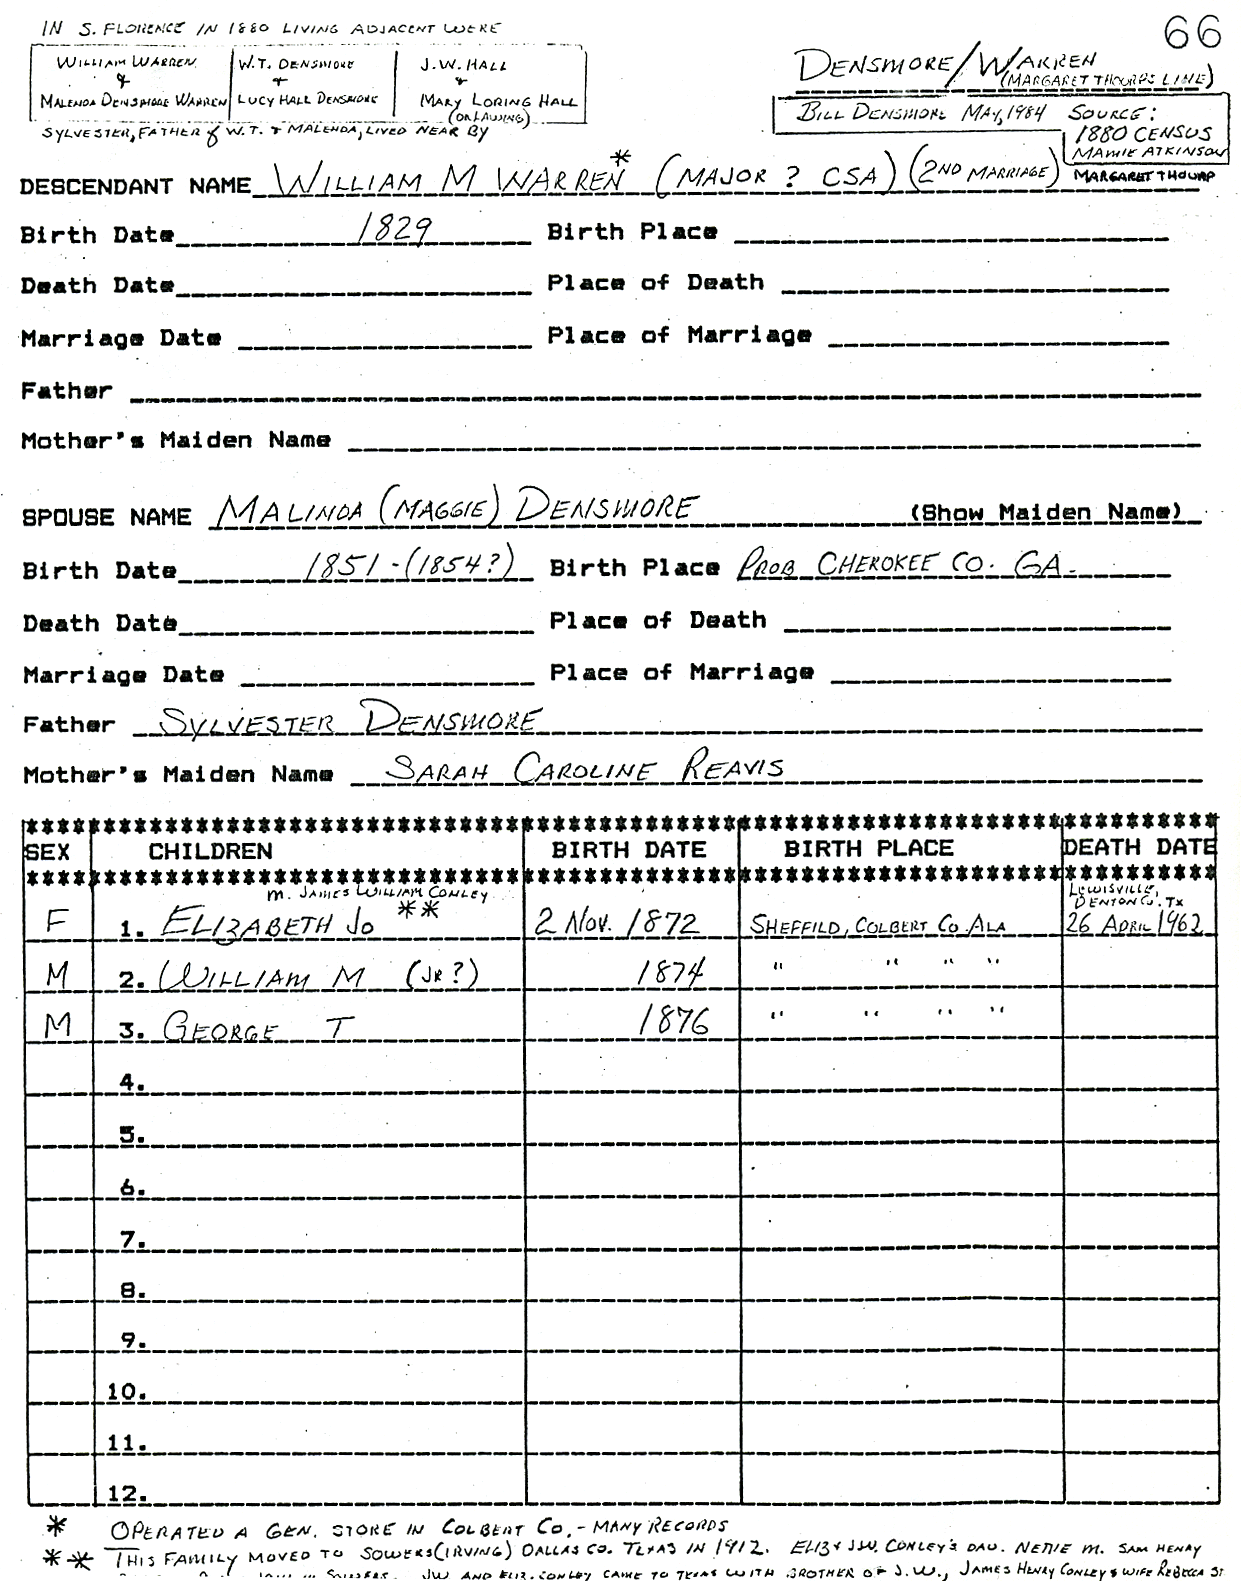 66
IN S. FLORENCE IN 1880 LIVING ADJACENT WERE
WILLIAM WARREN & MALENDA DENSMORE WARREN
W.T. DENSMORE + LUCY HALL DENSMORE
J.W. HALL & MARY LORING HALL (OR LAUSING)
SYLVESTER, FATHER of W.T. & MALENDA, LIVED NEAR BY
DENSMORE/WARREN
(MARGARET THOURP'S LINE)
BILL DENSMORE MAY, 1984
SOURCE:
1880 CENSUS
MAMIE ATKINSON
MARGARET THOURP
DESCENDANT NAME WILLIAM M WARREN* (MAJOR ? CSA) (2ND MARRIAGE)
Birth Date 1829 Birth Place
Death Date Place of Death
Marriage Date Place of Marriage
Father
Mother's Maiden Name
SPOUSE NAME MALINDA (MAGGIE) DENSMORE (Show Maiden Name)
Birth Date 1851-(1854?) Birth Place PROB CHEROKEE CO. GA.
Death Date Place of Death
Marriage Date Place of Marriage
Father SYLVESTER DENSMORE
Mother's Maiden Name SARAH CAROLINE REAVIS
SEX CHILDREN BIRTH DATE BIRTH PLACE DEATH DATE
M. JAMES WILLIAM CONLEY
LEWISVILLE,
DENTON CO. TX
F 1. ELIZABETH JO ** 2 NOV. 1872 SHEFFILD, COLBERT CO. ALA 26 APRIL 1962
M 2. WILLIAM M (JR?) 1874 " " " "
M 3. GEORGE T 1876 " " " "
4.
5.
6.
7.
8.
9.
10.
11.
12.
* OPERATED A GEN. STORE IN COLBERT CO. - MANY RECORDS
** THIS FAMILY MOVED TO SOWERS (IRVING) DALLAS CO. TEXAS IN 1912. ELIZ & J.W. CONLEY'S DAU. NETIE M. SAM HENRY
JW AND ELIZ. CONLEY CAME TO TEXAS WITH BROTHER OF J.W., JAMES HENRY CONLEY & WIFE REBECCA